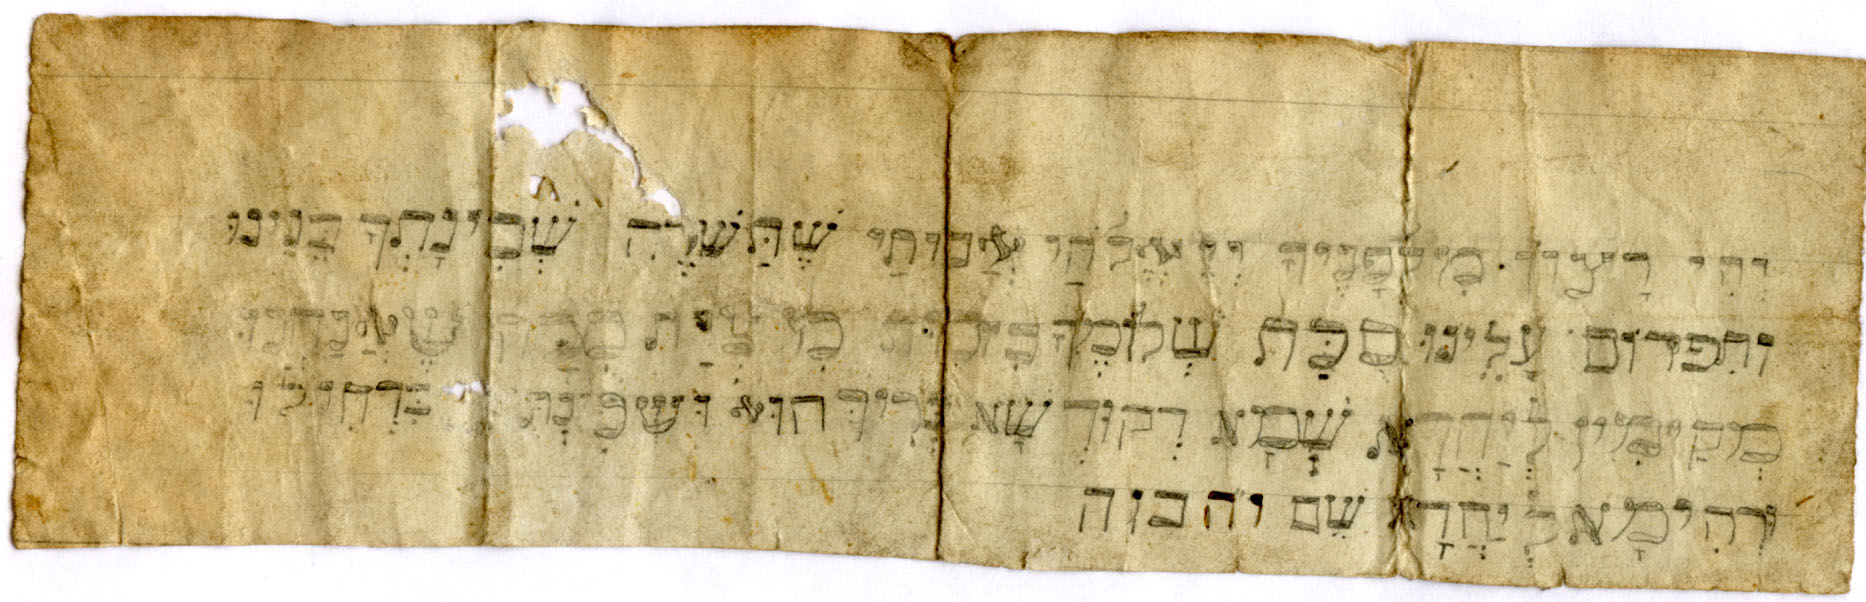 וִהִי רָצוֹן מִלְפָנֶיךָ יְיָ אֱלֹהַי אֲבוֹתַי שֶׁתַּשְׁרֶה שְׁכִינָתְךָ בֵּנֵינוּ
וְתִפְרוֹס עָלֵינוּ סֻכַּת שְׁלוֹמֶךָ בִּזְכוּת מִצְוַת סֻכָּה שֶׁאֲנַחְנוּ
מְקַיְמִין לְיַחֲדָא שְׁמָא דְקוּדְשָׁא בְּרִיךְ הוּא וּשְׁכִינְתֵּ בִּדְחִילוּ
וּרְהִימָא לְיַחֲדָא שֵׁם